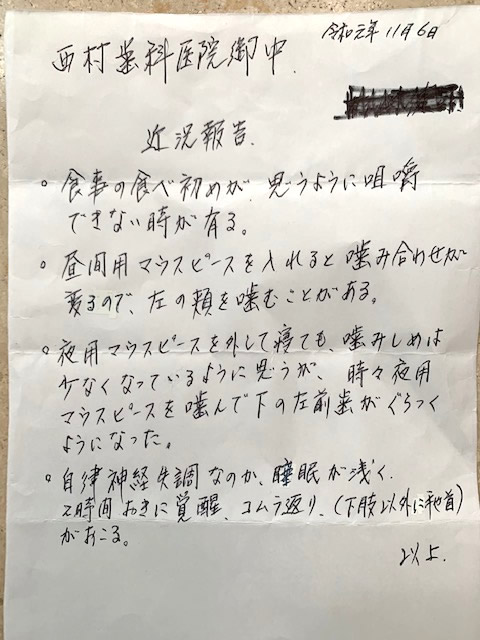 令和元年11月6日
西村歯科医院御中.
近況報告.
○ 食事の食べ初めが、思うように咀嚼
できない時が有る。
○ 昼間用マウスピースを入れると噛み合わせが
変るので、左の頬を噛むことがある。
○ 夜用マウスピースを外して寝ても、噛みしめは
少なくなっているように思うが、時々夜用
マウスピースを噛んで下の左前歯がぐらつく
ようになった。
○ 自律神経失調なのか、睡眠が浅く
2時間おきに覚醒、コムラ返り、(下肢以外に 首)
がおこる。
以上.